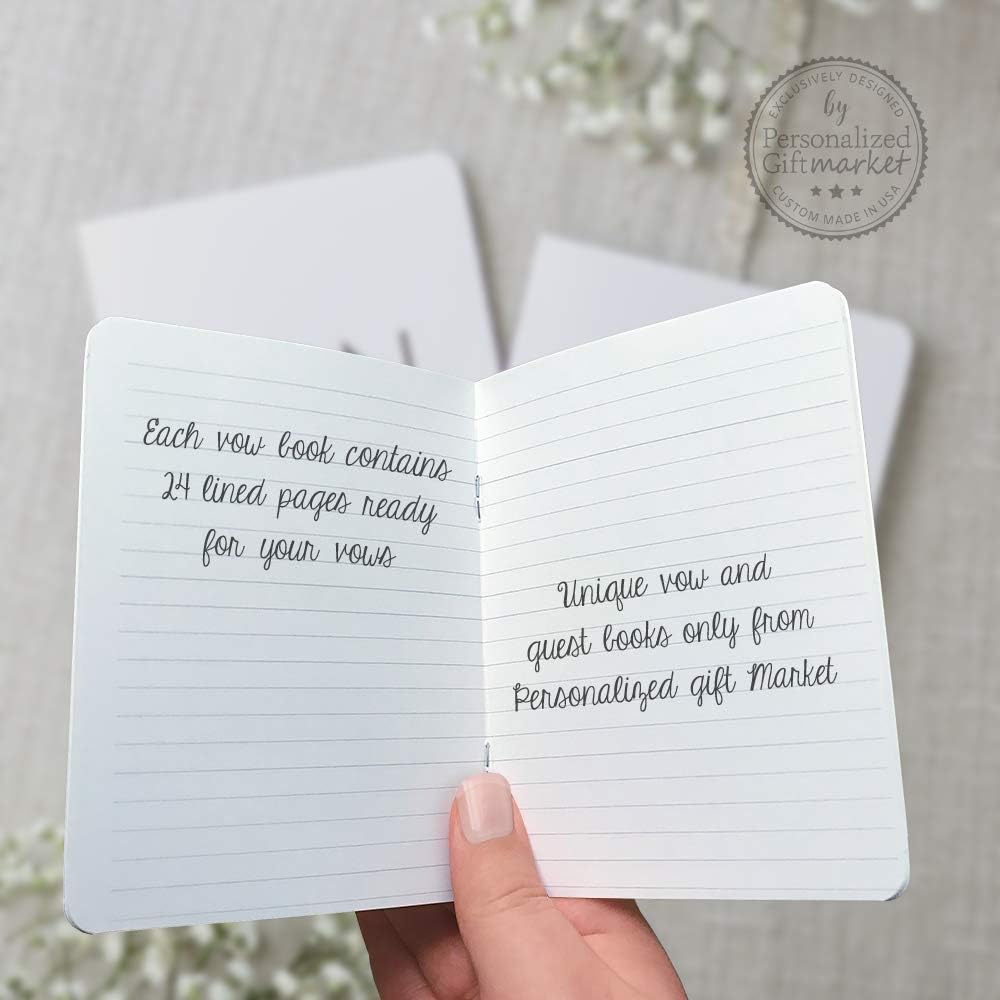 EXCLUSIVELY DESIGNED
by
Personalized
Giftmarket
CUSTOM MADE IN USA
N
Each vow book contains
24 lined pages ready
for your vows
Unique vow and
guest books only from
Personalized gift Market